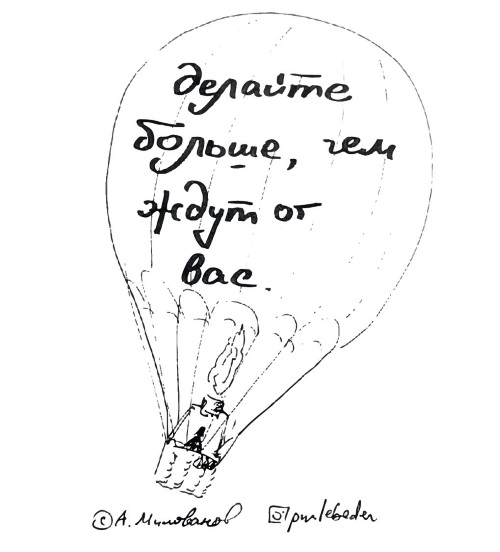 делайте
больше, чем
ждут от
вас.
© А. Милованов purlebeder